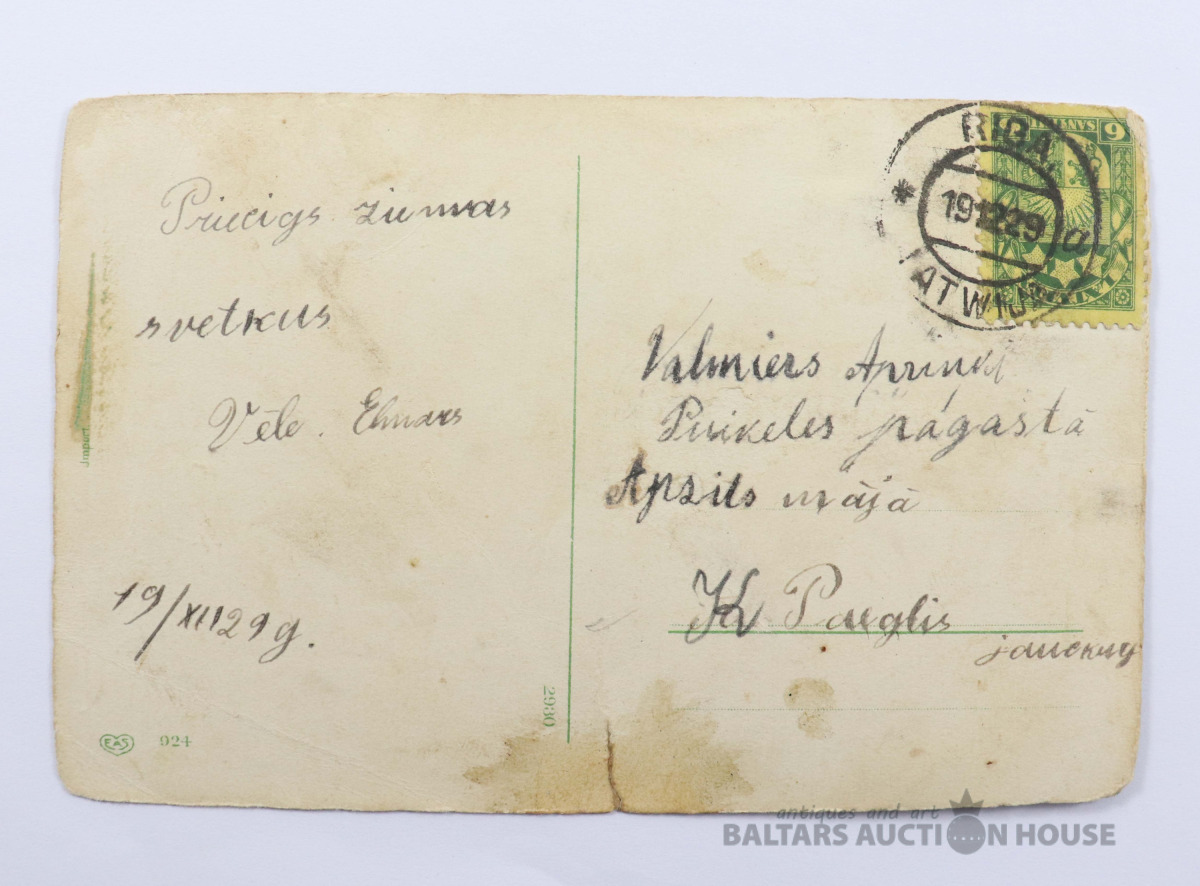 Priecigs ziemas
svetkus
Vēle. Elmars
19/XII 29 g.
Import.
EAS 924
2980
RIGA
191229
a
LATWIJA
6 SANTIMI 6
LATVIJA
Valmiers Apriņķī
Puikeles págastā
Apsils mājā
K Paeglis
jaunkung
antiques and art
BALTARS AUCTION HOUSE